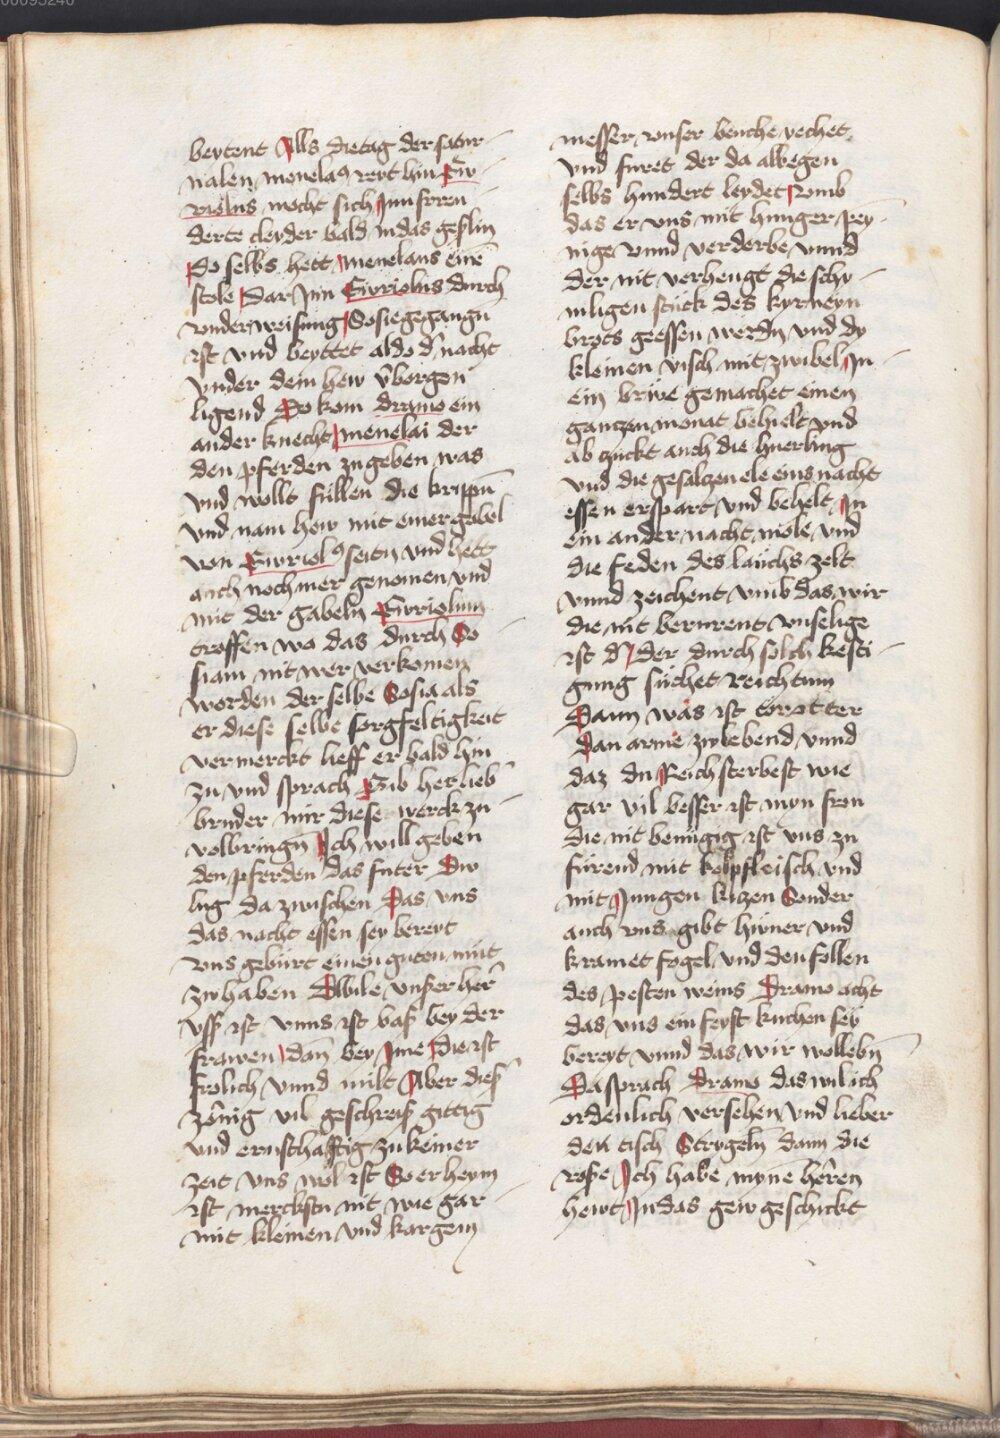 00095240
beytent Alls die tag der satur-
nalen menelaꝰ reyt hin Eu-
riolus mocht sich Inn frren
derte cleyder bald in das geßlin
Do selbs hett menelaus eine
stole Dar Inn Eurriolus durch
vnderweisung Sosie gegangn
ist vnd beyttet aldo d' nacht
vnder dem hew v̈borgen
ligend Do kom dramo ein
ander knecht menelai der
den pferden zu geben was
vnd wollt füllen die krippn̄
vnd nam hew mit einer gabel
von Eurriolꝰ seitn vnd hett
auch noch mer genomen vnd
mit der gabeln Eurriolum
troffen wo das durch So
siam nit wer verkomen
worden der selbe Sosia als
er diese selbe sorgfeltigkeit
vermerckt lieff er bald hin
zu vnd sprach Gib her lieb'
bruder mir diese werck zu-
volbringn̄ Ich will geben
den pferden das futer Du
lug da zwischen Das vns
das nacht essen sey bereyt
vns gebürt einen guten müt
zu haben Dwile vnser her̄
vsß ist vnns ist baß bey der
frawen dan̄ bey Ime die ist
frolich vnnd milt Aber dieß'
zornig vil geschreiß gittig
vnd ernsthafftig zu keiner
zeit vns wol ist So er heym
ist merckstu nit wie gar-
mit kleinen vnd kargem
messer vnser beuche rechet
vnd furet der da albegen
selbs hundert leydet vmb
das er vns mit hunger pey-
nige vnnd verderbe vnnd
der nit verhengt die schy-
mligen stück des kyrneyn
brots geessen werdn vnd dy
kleinen visch mit zwibel In-
ein brüe gemachet einen
gantzen monat behielt vnd
ab zückt auch die huerling
vnd die gesalczen ele eins nacht
essen erspart vnd behelt In
ein ander nacht mole vnd
die feden des lauchs zelt
vnnd zeichent vmb das wir
die nit berurent vnselige
ist d' der durch solch kesti-
gung süchet reichtum
Dann was ist torotter
Dan arme zu lebend vnnd
daz du Reich sterbest wie
gar vil besser ist myn frou
die nit benügig ist vns zu
fürend mit kelpfleisch vnd
mit Jungen kizen Sonder
auch vns gibt hüner vnd
kramet fogel vnd den follen
des pesten weins Dramo acht
das vns ein feyst kuchen sey
bereyt vnnd das wir wollebn̄
Da sprach Dramo das wil ich
ordenlich versehen vnd lieber
den tisch Strygeln̄ dann die
roße Ich habe myne hēren
hewt In das gew geschickt